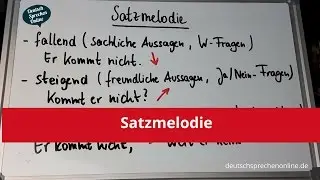 Deutsch
Sprechen
Online
Satzmelodie
- fallend (sachliche Aussagen, W-Fragen)
Er kommt nicht.
- steigend (freundliche Aussagen, Ja/Nein-Fragen)
Kommt er nicht?
Satzmelodie
Er kommt nicht,
deutschsprechenonline.de